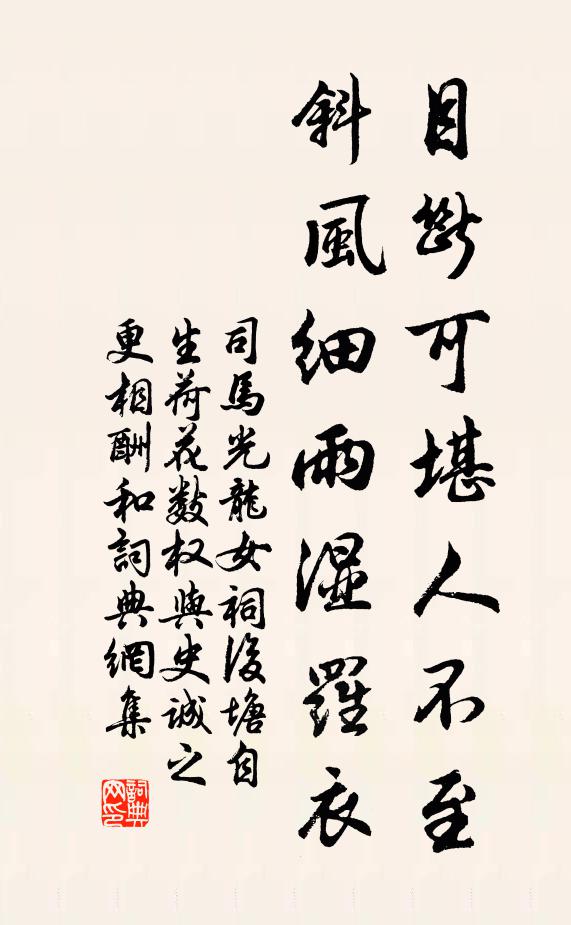 目斷可堪人不至
斜風細雨濕羅衣
司馬光龍女祠後塘自
生荷花數枝與史誠之
更相酬和詞典網集
詞典
网印